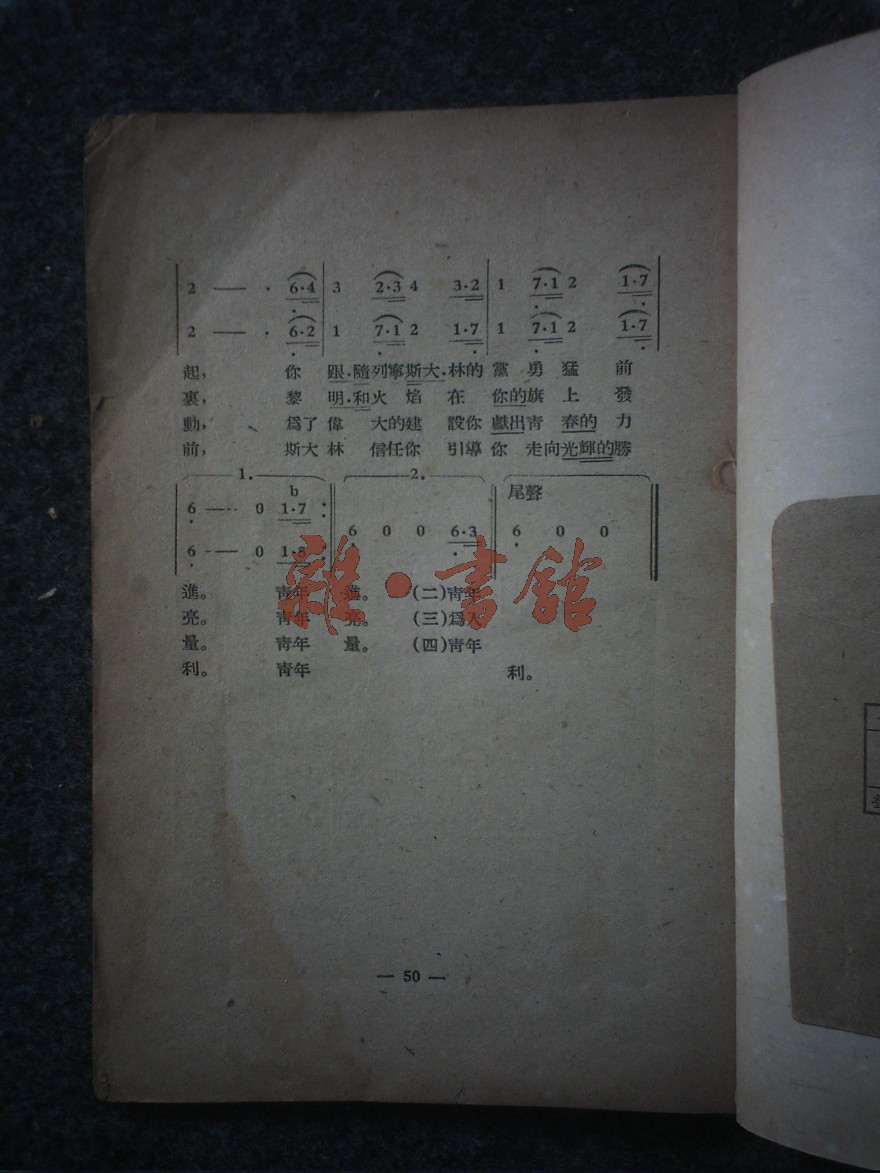 2 — · 6·4 | 3 2·3 4 3·2 | 1 7·1 2 1·7 |
2 — · 6·2 | 1 7·1 2 1·7 | 1 7·1 2 1·7 |
起, 你 跟·隨列寧斯大·林的 黨 勇 猛 前
裏, 黎 明·和火 焰 在 你的旗 上 發
動, 爲了 偉 大的建 設你 獻出靑 春的 力
前, 斯大 林 信任你 引導你 走向光輝的勝
1. 2.
b 尾聲
6 — 0 1·7 :
6 0 0 6·3 6 0 0
6 — 0
進。 靑年 進。 (二)靑年
亮。 靑年 亮。 (三)爲人
量。 靑年 量。 (四)靑年
利。 靑年 利。
雜·書館
— 50 —